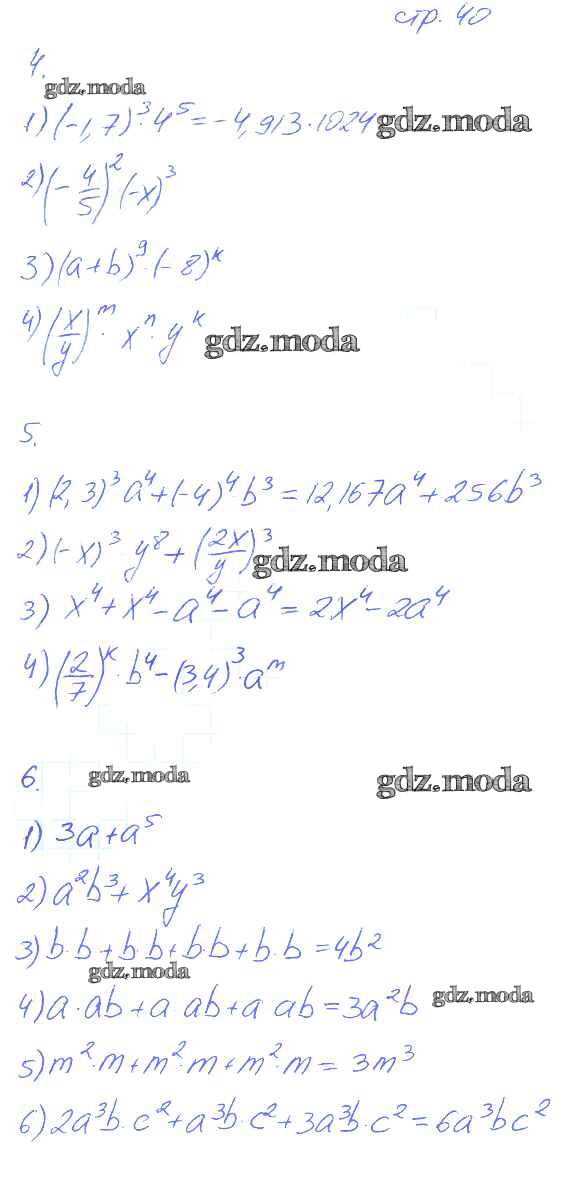 стр. 40
4.
gdz.moda
1) (-1,7)³·4⁵=-4,913·1024 gdz.moda
2) (-4/5)² (-x)³
3) (a+b)⁹·(-8)ᵏ
4) (x/y)ᵐ· xⁿ· yᵏ gdz.moda
5.
1) (2,3)³a⁴+(-4)⁴b³=12,167a⁴+256b³
2) (-x)³ y⁸+(2x/y)³ gdz.moda
3) x⁴+x⁴-a⁴-a⁴=2x⁴-2a⁴
4) (2/7)ᵏ·b⁴-(3,4)³·aᵐ
6. gdz.moda gdz.moda
1) 3a+a⁵
2) a²b³+x⁴y³
3) b·b+b·b+b·b+b·b=4b²
gdz.moda
4) a·ab+a ab+a ab=3a²b gdz.moda
5) m²·m+m²·m+m²·m=3m³
6) 2a³b·c²+a³b·c²+3a³b·c²=6a³bc²